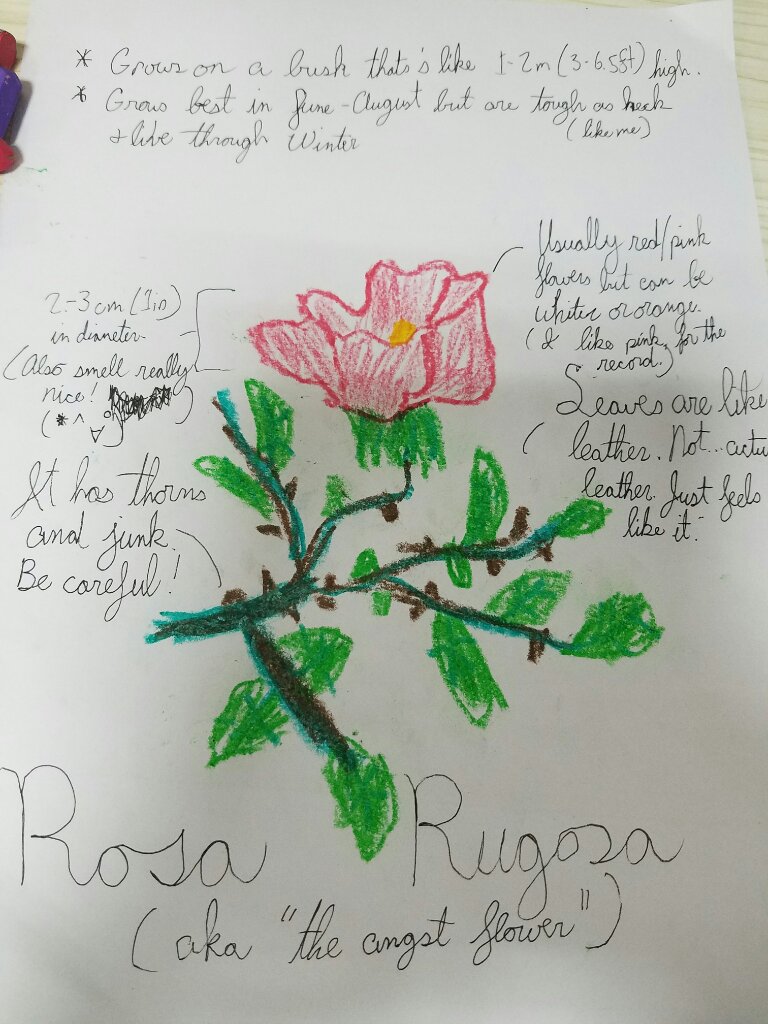 * Grows on a bush that's like 1-2m (3-6.5ft) high.
* Grows best in June-August but are tough as heck
(like me)
& live through Winter
Usually red/pink
flowers but can be
white or orange.
(I like pink, for the
record.)
2-3cm (1in)
in diameter.
(Also smell really
nice!
Leaves are like
leather. Not...
leather. Just feels
like it.
It has thorns
and junk.
Be careful!
Rosa Rugosa
(aka "the angst flower")